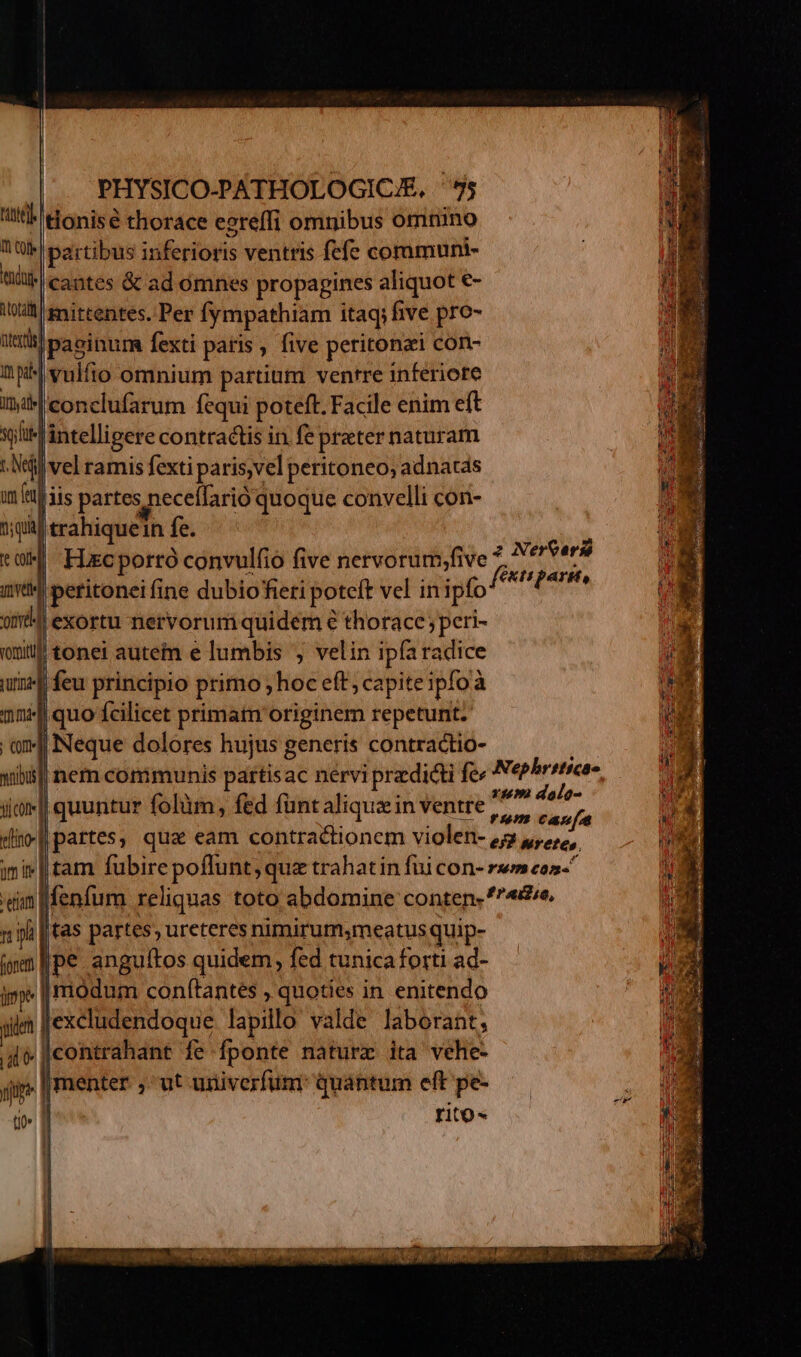 PHYSICO-PATHOLOGICÆ. 75
tionis è thorace egreſſi omnibus omnino
partibus inferioris ventris ſeſe communi-
cantes & ad omnes propagines aliquot e-
mittentes. Per ſympathiam itaq; ſive pro-
paginum ſexti paris, ſive peritonæi con-
vulſio omnium partium ventre inferiore
concluſarum ſequi poteſt. Facile enim eſt
intelligere contractis in ſe præter naturam
vel ramis ſexti paris, vel peritoneo, adnatas
iis partes neceſſariò quoque convelli con-
trahique in ſe.
Hæc porrò convulſio ſive nervorum, ſive
peritonei ſine dubio fieri poteſt vel in ipſo
exortu nervorum quidem è thorace, peri-
tonei autem è lumbis, vel in ipſa radice
ſeu principio primo, hoc eſt, capite ipſo à
quo ſcilicet primam originem repetunt.
Neque dolores hujus generis contractio-
nem communis partis ac nervi prædicti ſe-
quuntur ſolùm, ſed ſunt aliquæ in ventre
partes, quæ eam contractionem violen-
tam ſubire poſſunt, quæ trahat in ſui con-
ſenſum reliquas toto abdomine conten-
tas partes, ureteres nimirum, meatus quip-
pe anguſtos quidem, ſed tunica forti ad-
modum conſtantes, quoties in enitendo
excludendoque lapillo valde laborant,
contrahant ſe ſponte naturæ ita vehe-
menter, ut univerſum quantum eſt pe-
rito-
2 Nervorū
ſexti paris,
Nephritica-
rum dolo-
rum cauſa
eſt urete-
rum con-
tractio,